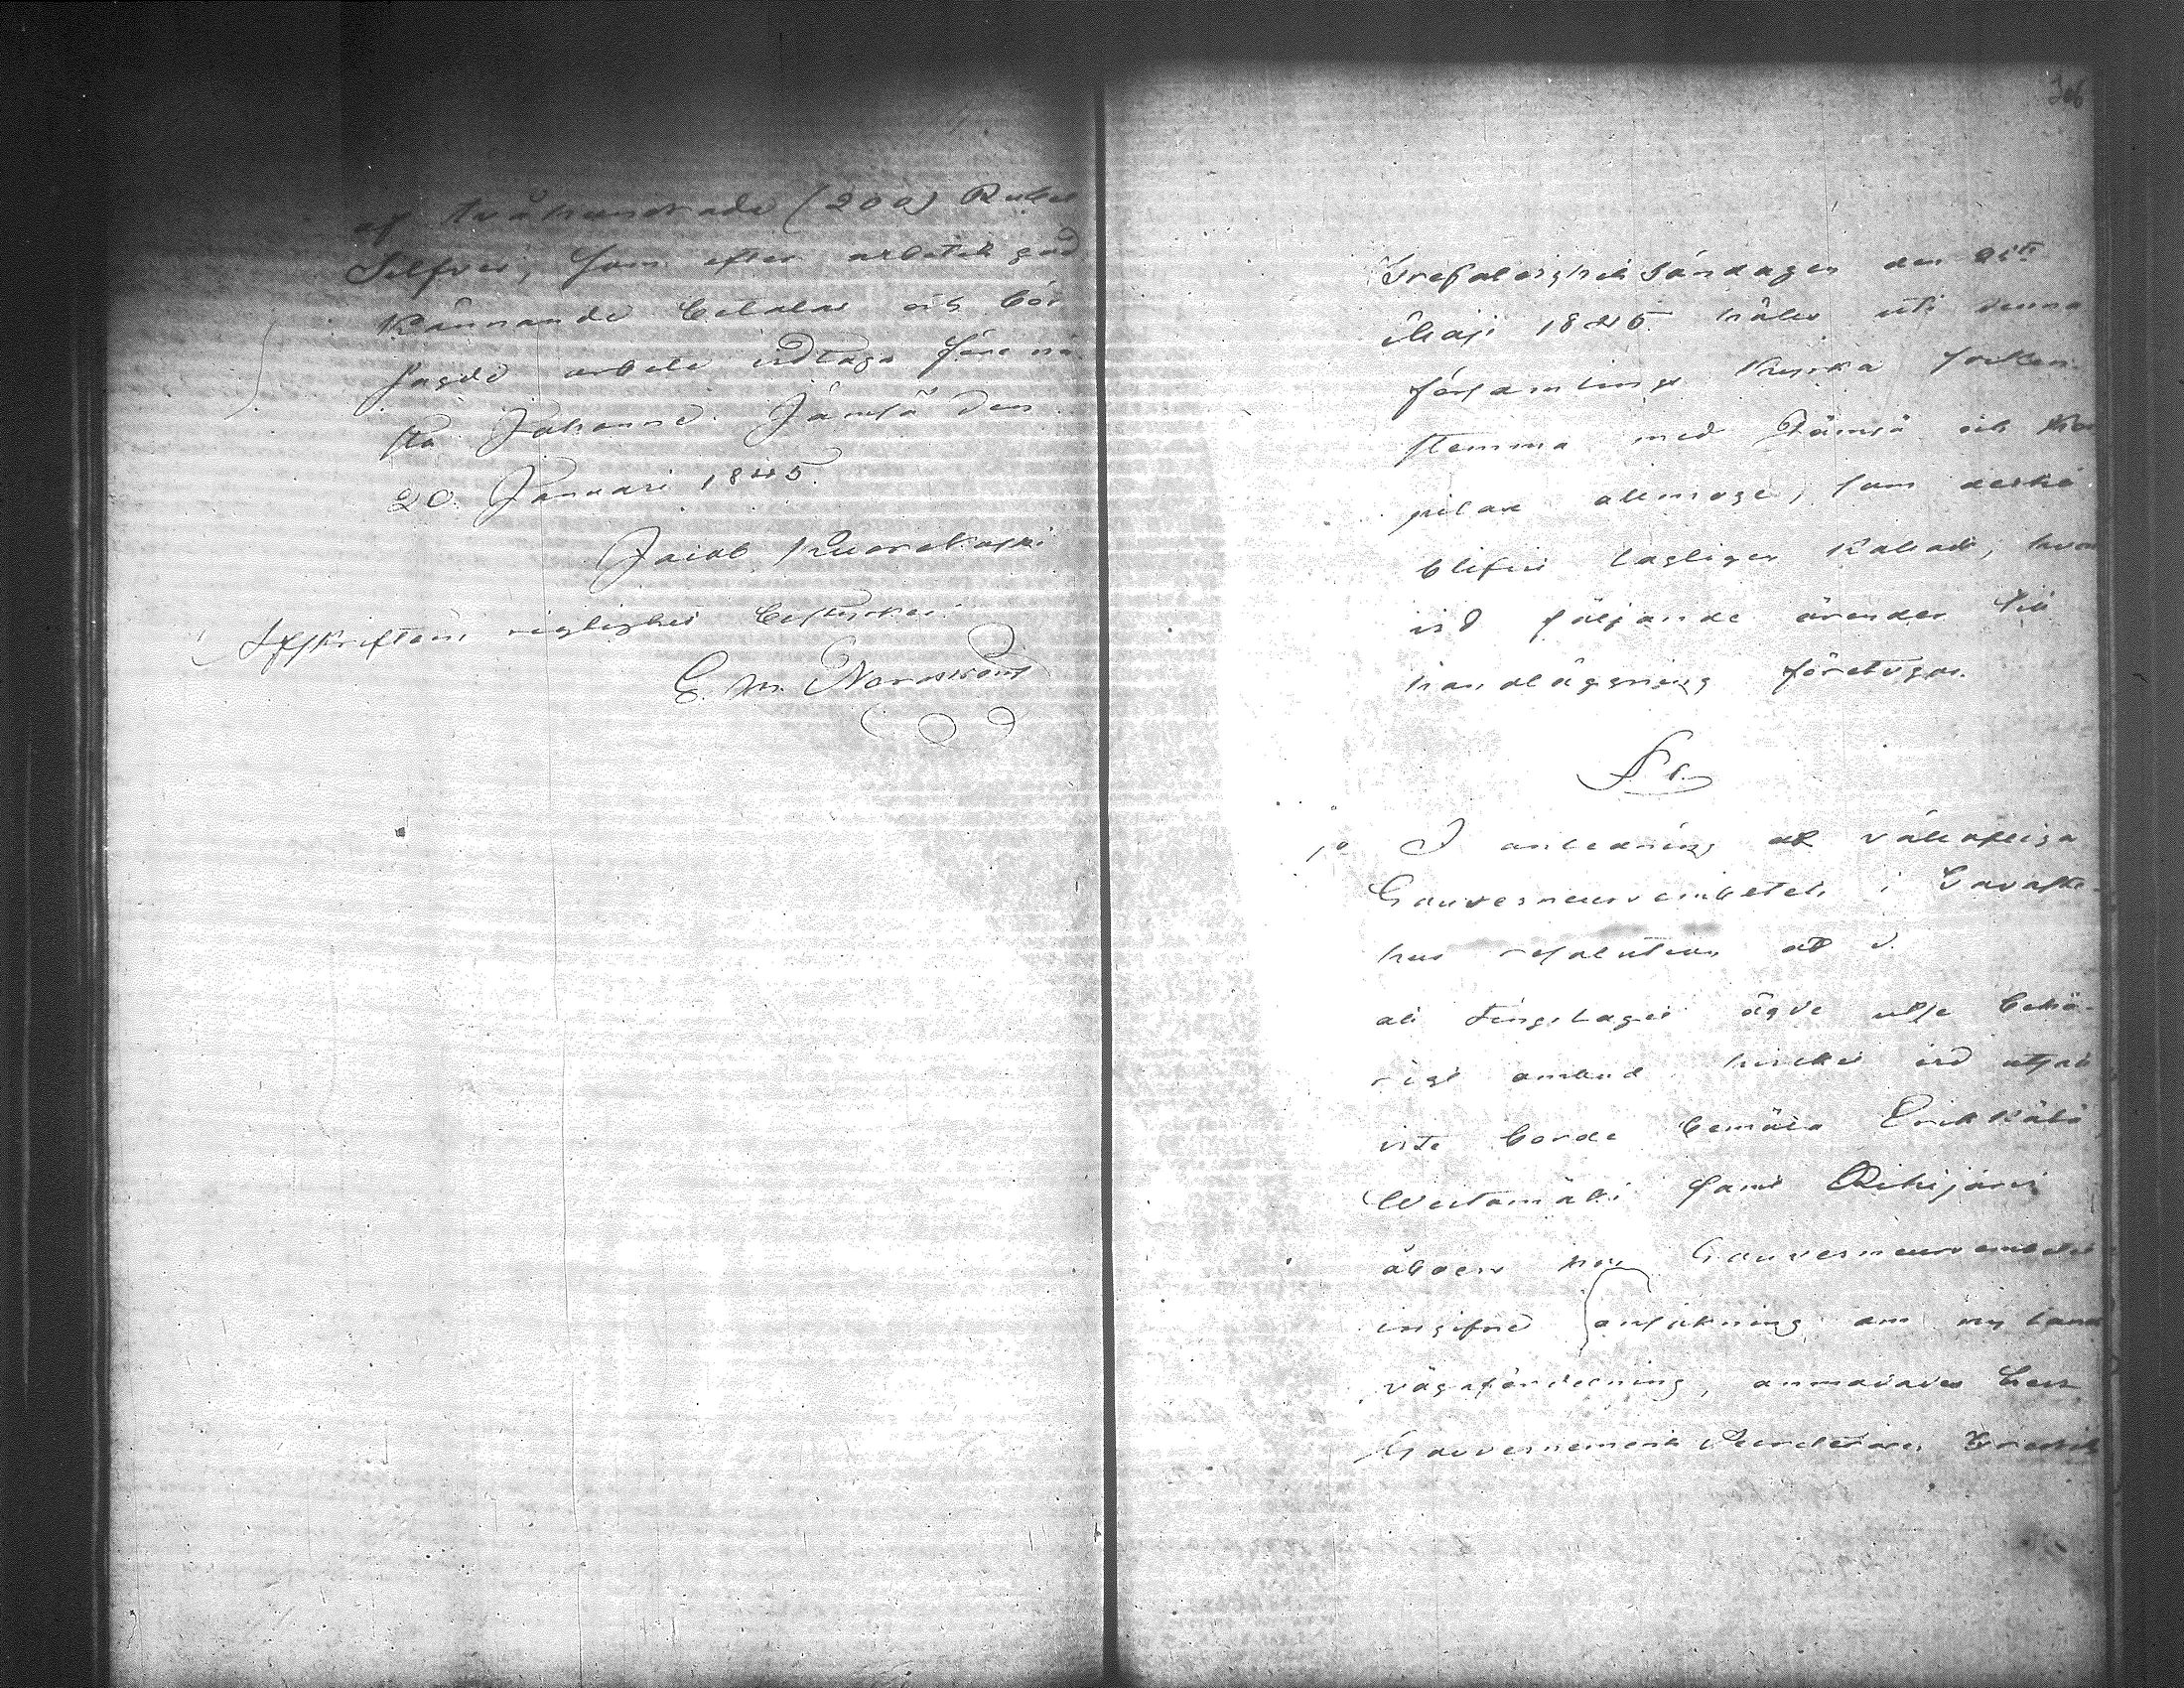 af tvåhundrade (200) Rubel
Silfver, som efter arbetets god
kännande betalas och bör
sagde arbete vidtaga före nä
sta Johanne. Jämsä den
20. Januari 1845.
Jacob Kuorekoski
Afskriftens riktighet bestyrker:
E. W. Nordstr
306
Trefaldighets Söndagen den
Maji 1845. hölls uti denna
församlings kyrka socken-
stemma med Jämsä och Kor
pilax allmoge, som dertil
blifvit lagligen kallade, hvar
vid följande ärender till
handläggning företogos.
§ 1.
1o I anledning af vällofliga
Gouverneursembetets i Tavaste-
hus resolution af d.
att Tingslaget ägde utse behö-
rigt ombud hvilket vid utsatt
vite borde bemöta Erik Käli
Westamäki samt
åboers hos Gouverneursembetet
ingifne ansökning om ny lands
vägafördelning, anmodades Herr
Gouvernements Secreteraren